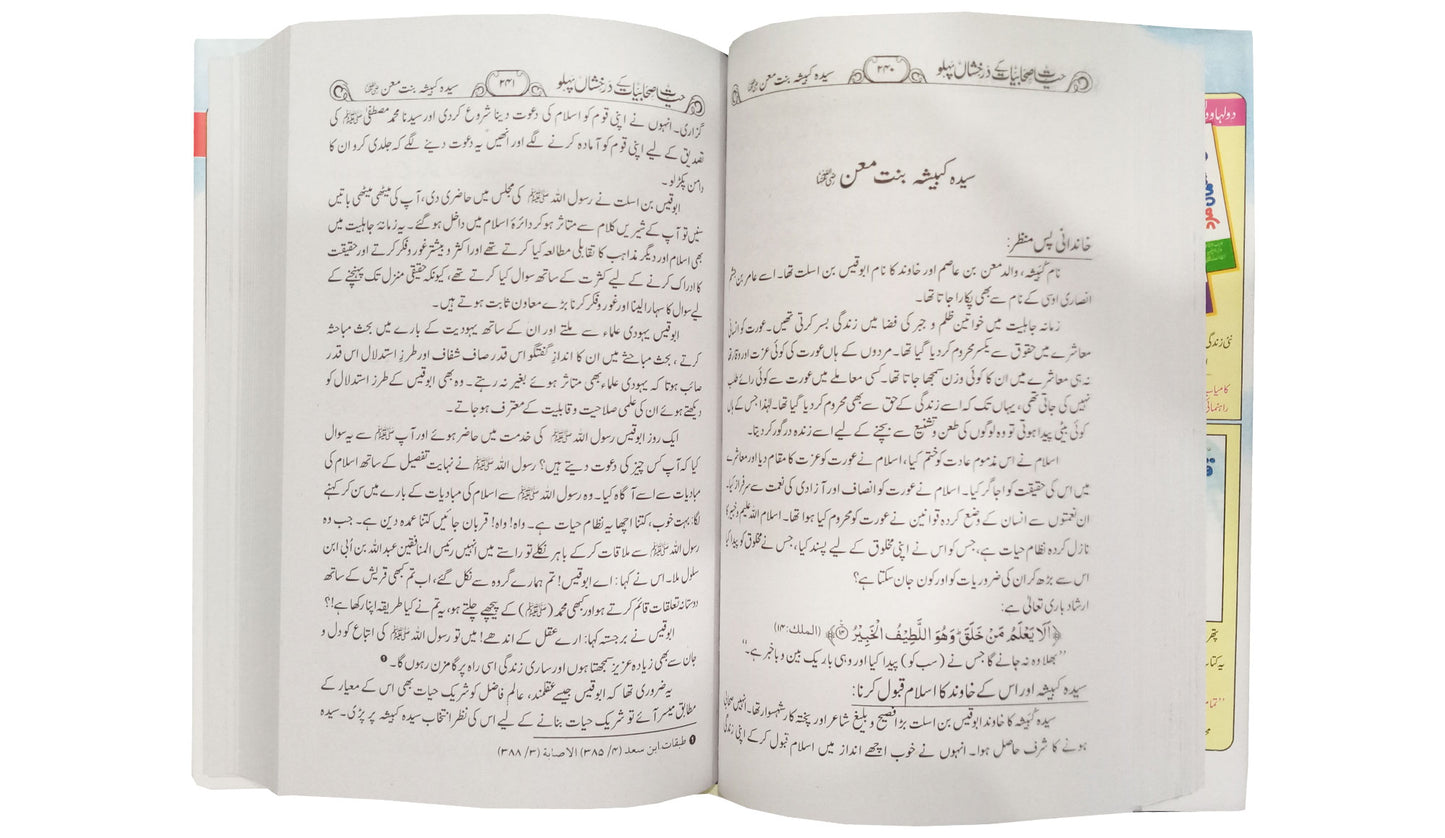 حیات صحابیات کے درخشاں پہلو ۲۴۰ سیدہ کبیشہ بنت معن رضی اللہ عنہا
سیدہ کبیشہ بنت معن رضی اللہ عنہا
خاندانی پس منظر:
نام کبیشہ، والد معن بن عاصم اور خاوند کا نام ابوقیس بن اسلت تھا۔ اسے عامر بن جشم
انصاری اوسی کے نام سے بھی پکارا جاتا تھا۔
زمانہ جاہلیت میں خواتین ظلم و جبر کی فضا میں زندگی بسر کرتی تھیں۔ عورت کو انسانی
معاشرے میں حقوق سے یکسر محروم کر دیا گیا تھا۔ مردوں کے ہاں عورت کی کوئی عزت اور وقار نہ تھا
نہ ہی معاشرے میں ان کا کوئی وزن سمجھا جاتا تھا۔ کسی معاملے میں عورت سے کوئی رائے طلب
نہیں کی جاتی تھی، یہاں تک کہ اسے زندگی کے حق سے بھی محروم کر دیا گیا تھا۔ لہٰذا جس کے ہاں
کوئی بیٹی پیدا ہوتی تو وہ لوگوں کی طعن و تشنیع سے بچنے کے لیے اسے زندہ درگور کر دیتا۔
اسلام نے اس مذموم عادت کو ختم کیا، اسلام نے عورت کو عزت کا مقام دیا اور معاشرے
میں اس کی حقیقت کو اجاگر کیا۔ اسلام نے عورت کو انصاف اور آزادی کی نعمت سے سرفراز کیا۔
ان نعمتوں سے انسان کے وضع کردہ قوانین نے عورت کو محروم کیا ہوا تھا۔ اسلام اللہ علیم و خبیر کا
نازل کردہ نظام حیات ہے، جس کو اس نے اپنی مخلوق کے لیے پسند کیا، جس نے مخلوق کو پیدا کیا
اس سے بڑھ کر ان کی ضروریات کو اور کون جان سکتا ہے؟
ارشاد باری تعالیٰ ہے:
﴿اَلَا يَعْلَمُ مَنْ خَلَقَ ۚ وَهُوَ اللَّطِيْفُ الْخَبِيْرُ ۝۱۴﴾ (الملک: ۱۴)
”بھلا وہ نہ جانے گا جس نے (سب کو) پیدا کیا اور وہی باریک بین و باخبر ہے۔“
سیدہ کبیشہ اور اس کے خاوند کا اسلام قبول کرنا:
سیدہ کبیشہ کا خاوند ابوقیس بن اسلت بڑا فصیح و بلیغ شاعر اور پختہ کار شہسوار تھا۔ انہیں صحابی
ہونے کا شرف حاصل ہوا۔ انہوں نے خوب اچھے انداز میں اسلام قبول کر کے اپنی زندگی
حیات صحابیات کے درخشاں پہلو ۲۴۱ سیدہ کبیشہ بنت معن رضی اللہ عنہا
گزاری۔ انہوں نے اپنی قوم کو اسلام کی دعوت دینا شروع کر دی اور سیدنا محمد مصطفیٰ ﷺ کی
تصدیق کے لیے اپنی قوم کو آمادہ کرنے لگے اور انھیں یہ دعوت دینے لگے کہ جلدی کرو ان کا
دامن پکڑ لو۔
ابوقیس بن اسلت نے رسول اللہ ﷺ کی مجلس میں حاضری دی، آپ کی میٹھی میٹھی باتیں
سنیں تو آپ کے شیریں کلام سے متاثر ہو کر دائرۂ اسلام میں داخل ہو گئے۔ یہ زمانۂ جاہلیت میں
بھی اسلام اور دیگر مذاہب کا تقابلی مطالعہ کیا کرتے تھے اور اکثر و بیشتر غور و فکر کرتے اور حقیقت
کا ادراک کرنے کے لیے کثرت کے ساتھ سوال کیا کرتے تھے، کیونکہ حقیقی منزل تک پہنچنے کے
لیے سوال کا سہارا لینا اور غور و فکر کرنا بڑے معاون ثابت ہوتے ہیں۔
ابوقیس یہودی علماء سے ملتے اور ان کے ساتھ یہودیت کے بارے میں بحث مباحثہ
کرتے، بحث مباحثے میں ان کا انداز گفتگو اس قدر صاف شفاف اور طرز استدلال اس قدر
صائب ہوتا کہ یہودی علماء بھی متاثر ہوئے بغیر نہ رہتے۔ وہ بھی ابوقیس کے طرز استدلال کو
دیکھتے ہوئے ان کی علمی صلاحیت و قابلیت کے معترف ہو جاتے۔
ایک روز ابوقیس رسول اللہ ﷺ کی خدمت میں حاضر ہوئے اور آپ ﷺ سے یہ سوال
کیا کہ آپ کس چیز کی دعوت دیتے ہیں؟ رسول اللہ ﷺ نے نہایت تفصیل کے ساتھ اسلام کی
مبادیات سے اسے آگاہ کیا۔ وہ رسول اللہ ﷺ سے اسلام کی مبادیات کے بارے میں سن کر کہنے
لگا: بہت خوب، کتنا اچھا یہ نظام حیات ہے۔ واہ! واہ! قربان جائیں کتنا عمدہ دین ہے۔ جب وہ
رسول اللہ ﷺ سے ملاقات کر کے باہر نکلے تو راستے میں انہیں رئیس المنافقین عبداللہ بن اُبی ابن
سلول ملا۔ اس نے کہا: اے ابوقیس! تم ہمارے گروہ سے نکل گئے، اب تم کبھی قریش کے ساتھ
دوستانہ تعلقات قائم کرتے ہو اور کبھی محمد (ﷺ) کے پیچھے چلتے ہو، یہ تم نے کیا طریقہ اپنا رکھا ہے!؟
ابوقیس نے برجستہ کہا: ارے عقل کے اندھے! میں تو رسول اللہ ﷺ کی اتباع کو دل و
جان سے بھی زیادہ عزیز سمجھتا ہوں اور ساری زندگی اسی راہ پر گامزن رہوں گا۔ ❶
یہ ضروری تھا کہ ابوقیس جیسے عقلمند، عالم فاضل کو شریک حیات بھی اس کے معیار کے
مطابق میسر آئے تو شریک حیات بنانے کے لیے اس کی نظر انتخاب سیدہ کبیشہ پر پڑی۔ سیدہ
❶ طبقات ابن سعد (۴/ ۳۸۵) الاصابة (۳/ ۳۸۸)
دولہا
نئی زندگی
کامیاب
راہنمائی
پھر
یہ کتاب